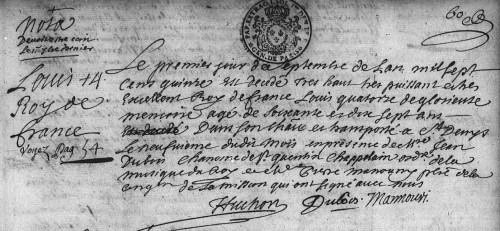 Nota
Louis 14
Roy de
france
Voyez pag 54
60
Le premier jour de septembre de Lan mil sept
cens quinze est decedé tres haut tres puissant et tres
Excellent Roy de france Louis quatorze de glorieuse
memoire agé de soixante et dix sept ans
Dans son chateau et transporté a St Denys
Le neufuieme dudit mois en presence de Jean
Dubois chanoine de St quentin chappelain ordre de la
musique du Roy et de pierre manoury prestre de la
congn de la mission qui ont signé avec nous
Huchon Dubois Mannoury.